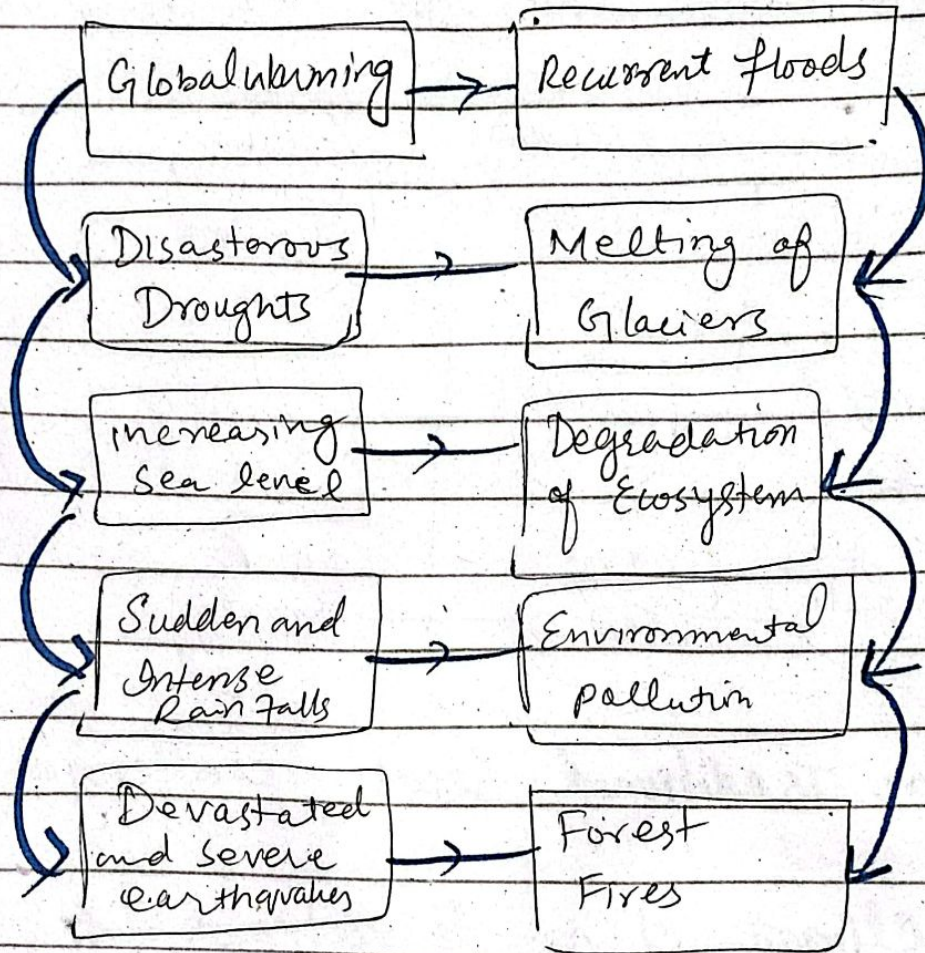 Global warming
Recurrent floods
Disasterous
Droughts
Melting of
Glaciers
increasing
sea level
Degradation
of Ecosystem
Sudden and
Intense
Rain Falls
Environmental
pollution
Devastated
and severe
earthquakes
Forest
Fires